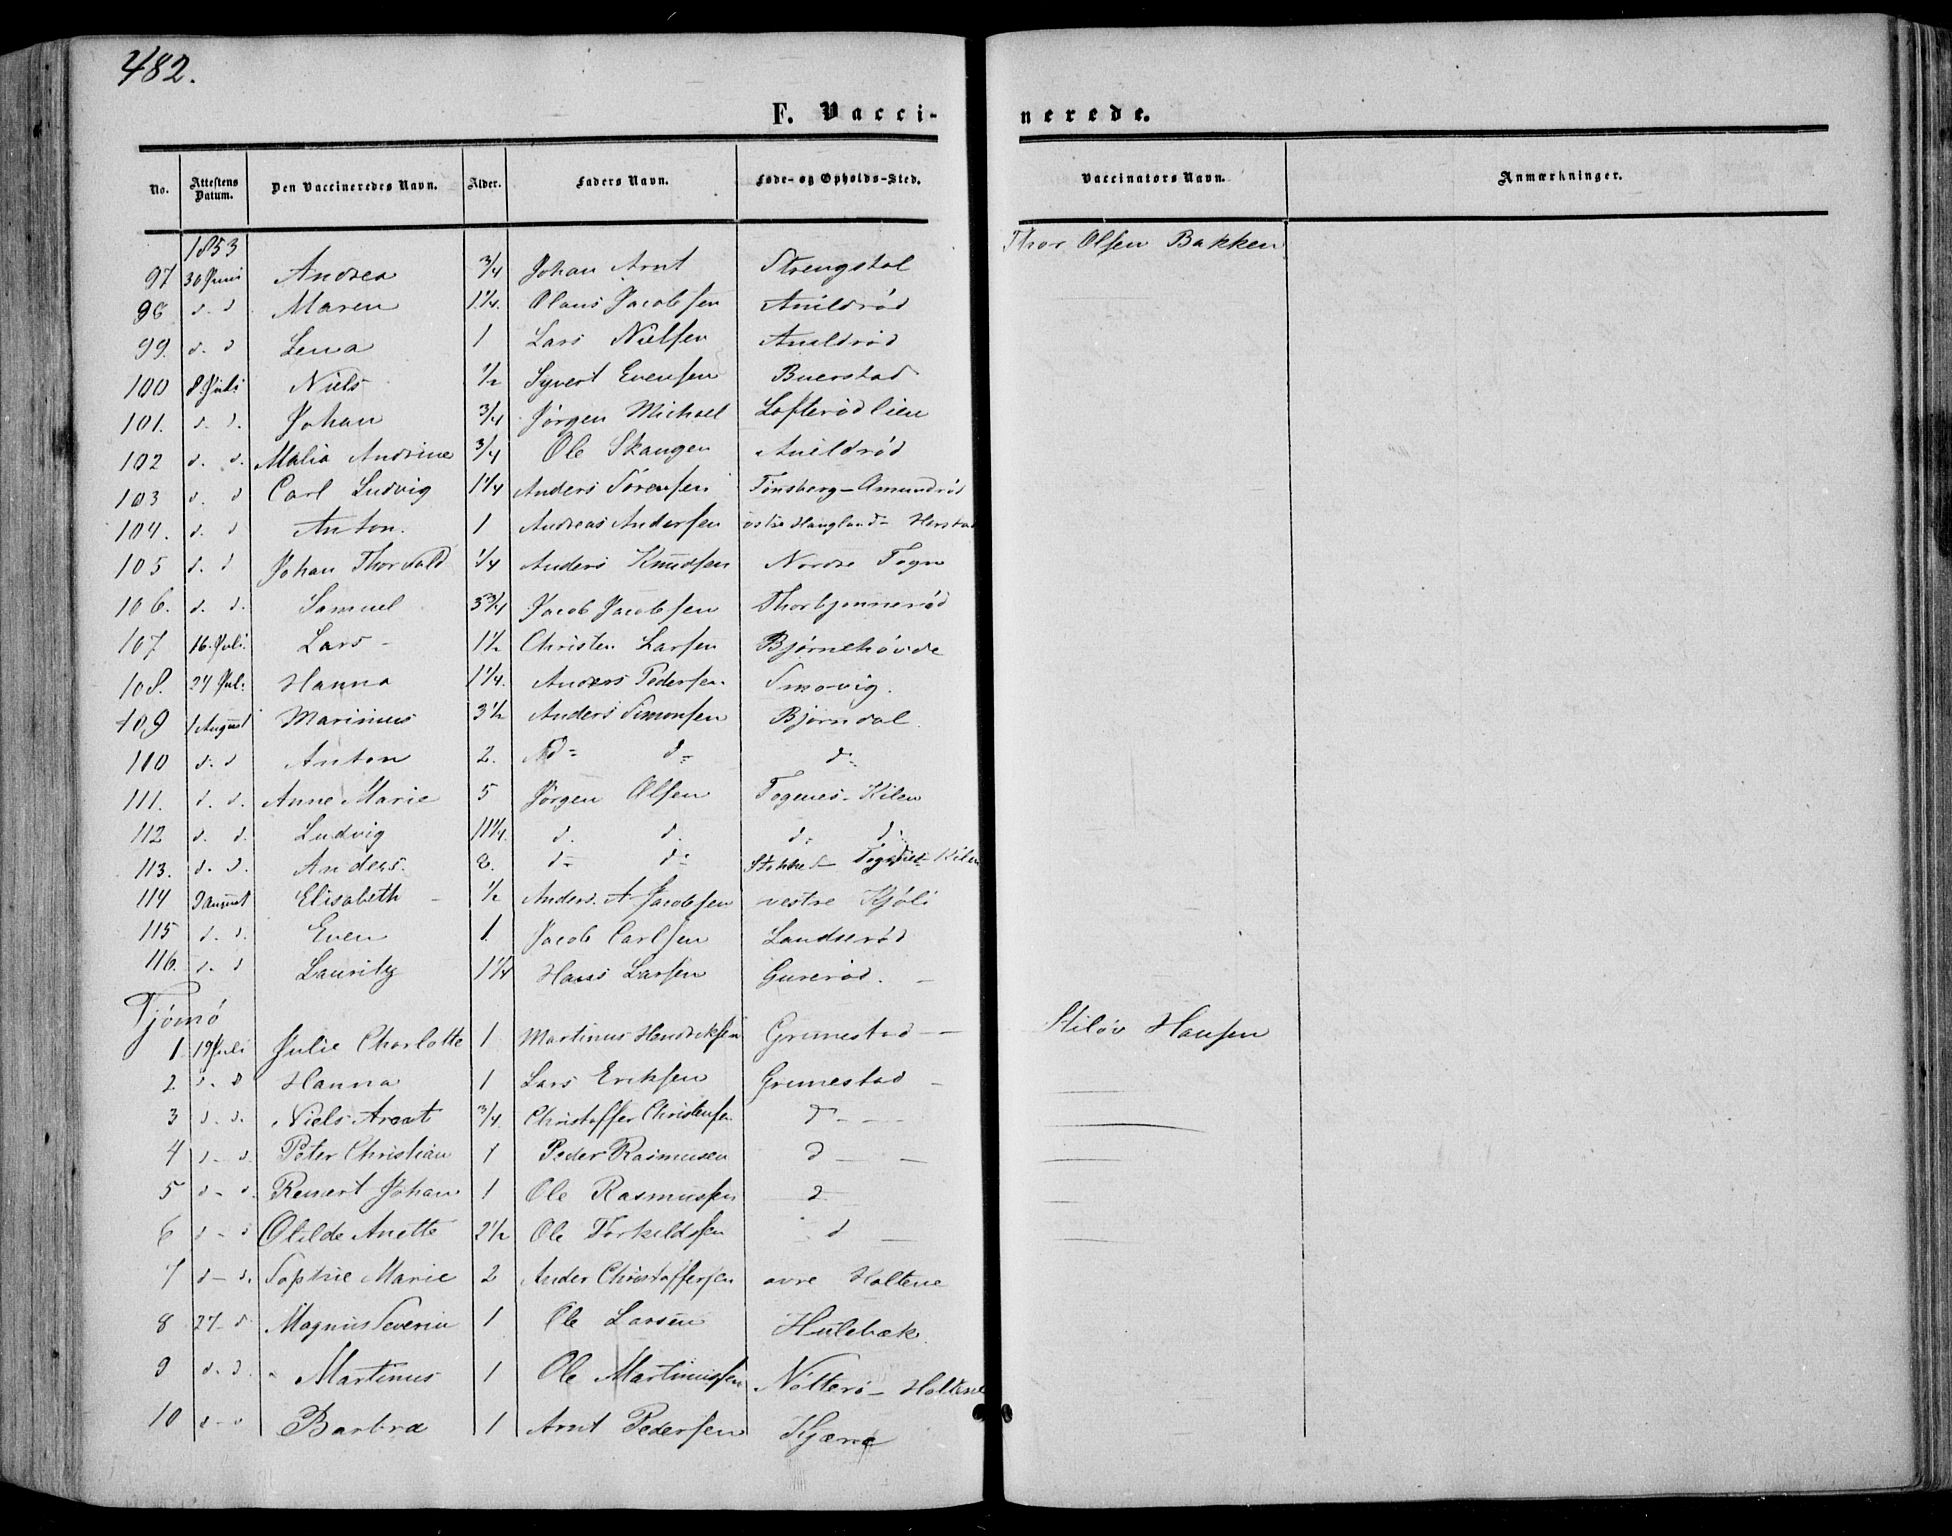 482.
F. Vaccinerede.
No. Attestens Datum. Den Vaccineredes Navn. Alder. Faders Navn. Føde- og Opholds-Sted. Vaccinators Navn. Anmærkninger.
1853
97 30 Juni Andrea 3/4 Johan Arnt Strengsdal Thor Olsen Bakken
98 d. d Maren 1 1/4. Olaus Jacobsen Anildrød
99. d. d Lena 1 Lars Nielsen Anildrød
100 8 Juli Niels 1/2 Syvert Evensen Buerstad
101. d. d. Johan 3/4 Jørgen Michael Lofterødlien
102 d. d. Malia Andrine 3/4 Ole Skaugen Anildrød
103 d. d Carl Ludvig 1 1/4 Anders Sørensen Tønsberg - Amundrød
104. d. d Anton. 1 Andreas Andersen østre Haugland - Herstad
105 d. d Johan Thorvald 1/4 Anders Knudsen Nordre Fogn
106. d. d. Samuel 5 3/4 Jacob Jacobsen Thorbjønnerød
107 16. Juli. Lars - 1 1/2 Christen Larsen Bjørnehøvde
108. 27 Juli Hanna 1 1/4. Anders Pedersen. Smovig.
109 1 August Marinius 3 1/2 Anders Simonsen Bjørndal
110 d. d Anton 2. d= d= d=
111. d. d. Anne Marie 5 Jørgen Olsen Togenes - Kilen
112 d. d. Ludvig 11 1/4. d. d. d. d.
113. d. d. Anders. 8. d- d- Stokke - Togenes - Kilen
114 9 August Elisabeth - 1/2 Anders. A. Jacobsen vestre Kjøle
115 d. d. Even 1. Jacob Carlsen Landserød
116. d. d Lauritz 1 1/4 Hans Larsen Guserød. -
Tjømø
1. 19 Juli Julie Charlotte 1 Martinus Hendriksen Grimestad - Stiløv Hansen
2. d. d Hanna 1 Lars Eriksen Grimestad -
3 d. d. Niels Arent 3/4. Christoffer Christensen d - - -
4 d - d. Peter Christian 1 Peder Rasmusen d - -
5 d - d. Reinert Johan 1 Ole Rasmussen d
6 d - d Otilde Anette 2 1/2 Ole Torkildssen d -
7 d - d. Sophie Marie 2 Ander Christoffersen øvre Holtene
8 27 - d Magnus Severin 1 Ole Larsen Hulebæk.
9 d. d. Martinus 1 Ole Martinussen Nøtterø - Holtene
10 d - d Barbra 1 Arnt Pedersen Kjære